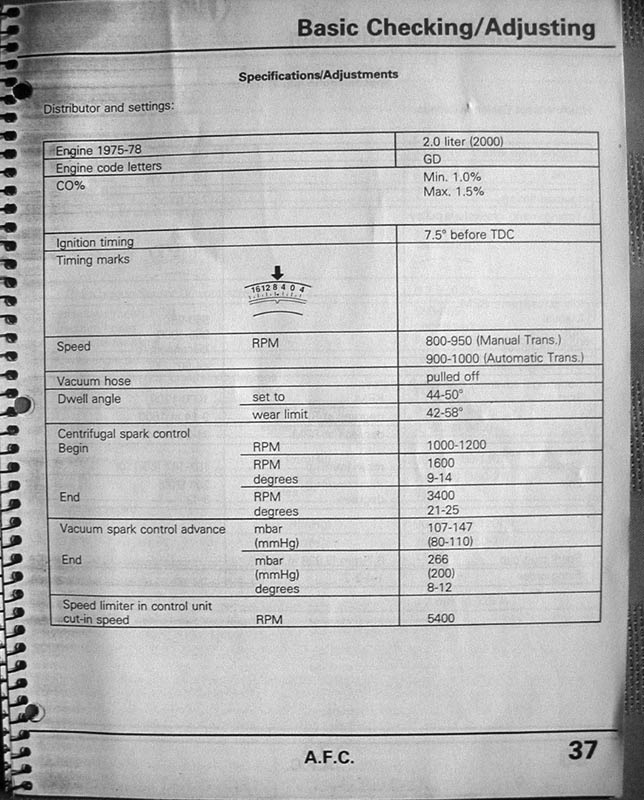 Basic Checking/Adjusting
Specifications/Adjustments
Distributor and settings:
Engine 1975-78 2.0 liter (2000)
Engine code letters GD
CO% Min. 1.0%
Max. 1.5%
Ignition timing 7.5° before TDC
Timing marks
16 12 8 4 0 4
Speed RPM 800-950 (Manual Trans.)
900-1000 (Automatic Trans.)
Vacuum hose pulled off
Dwell angle set to 44-50°
wear limit 42-58°
Centrifugal spark control
Begin RPM 1000-1200
RPM 1600
degrees 9-14
End RPM 3400
degrees 21-25
Vacuum spark control advance mbar 107-147
(mmHg) (80-110)
End mbar 266
(mmHg) (200)
degrees 8-12
Speed limiter in control unit
cut-in speed RPM 5400
A.F.C. 37